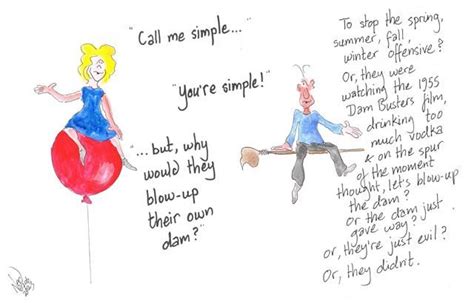 "Call me simple..."
"You're simple!"
"...but, why
would they
blow-up
their own
dam?"
To stop the spring,
summer, fall,
winter offensive?
Or, they were
watching the 1955
Dam Busters film,
drinking too
much vodka
& on the spur
of the moment
thought, let's blow-up
the dam?
Or the dam just
gave way?
Or, they're just evil?
Or, they didn't.